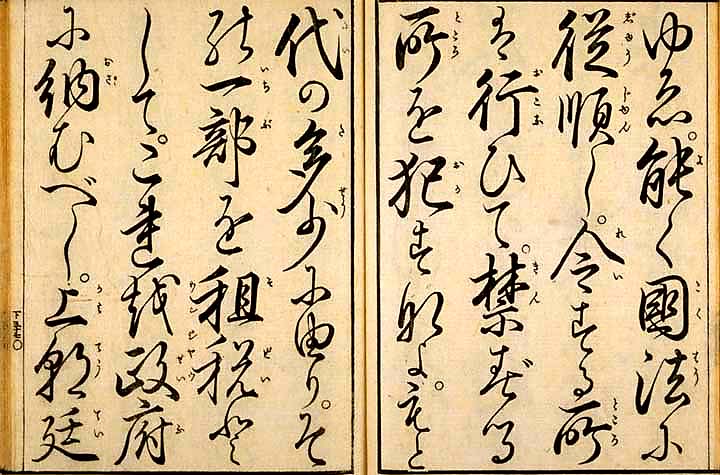 ゆゑ。能く國法に
従順し。令する所
を行ひて。禁ずる
所を犯すなよ。もと
代の多少に由り。そ
の一部を租税と
して。これを政府
に納むべし。上朝廷